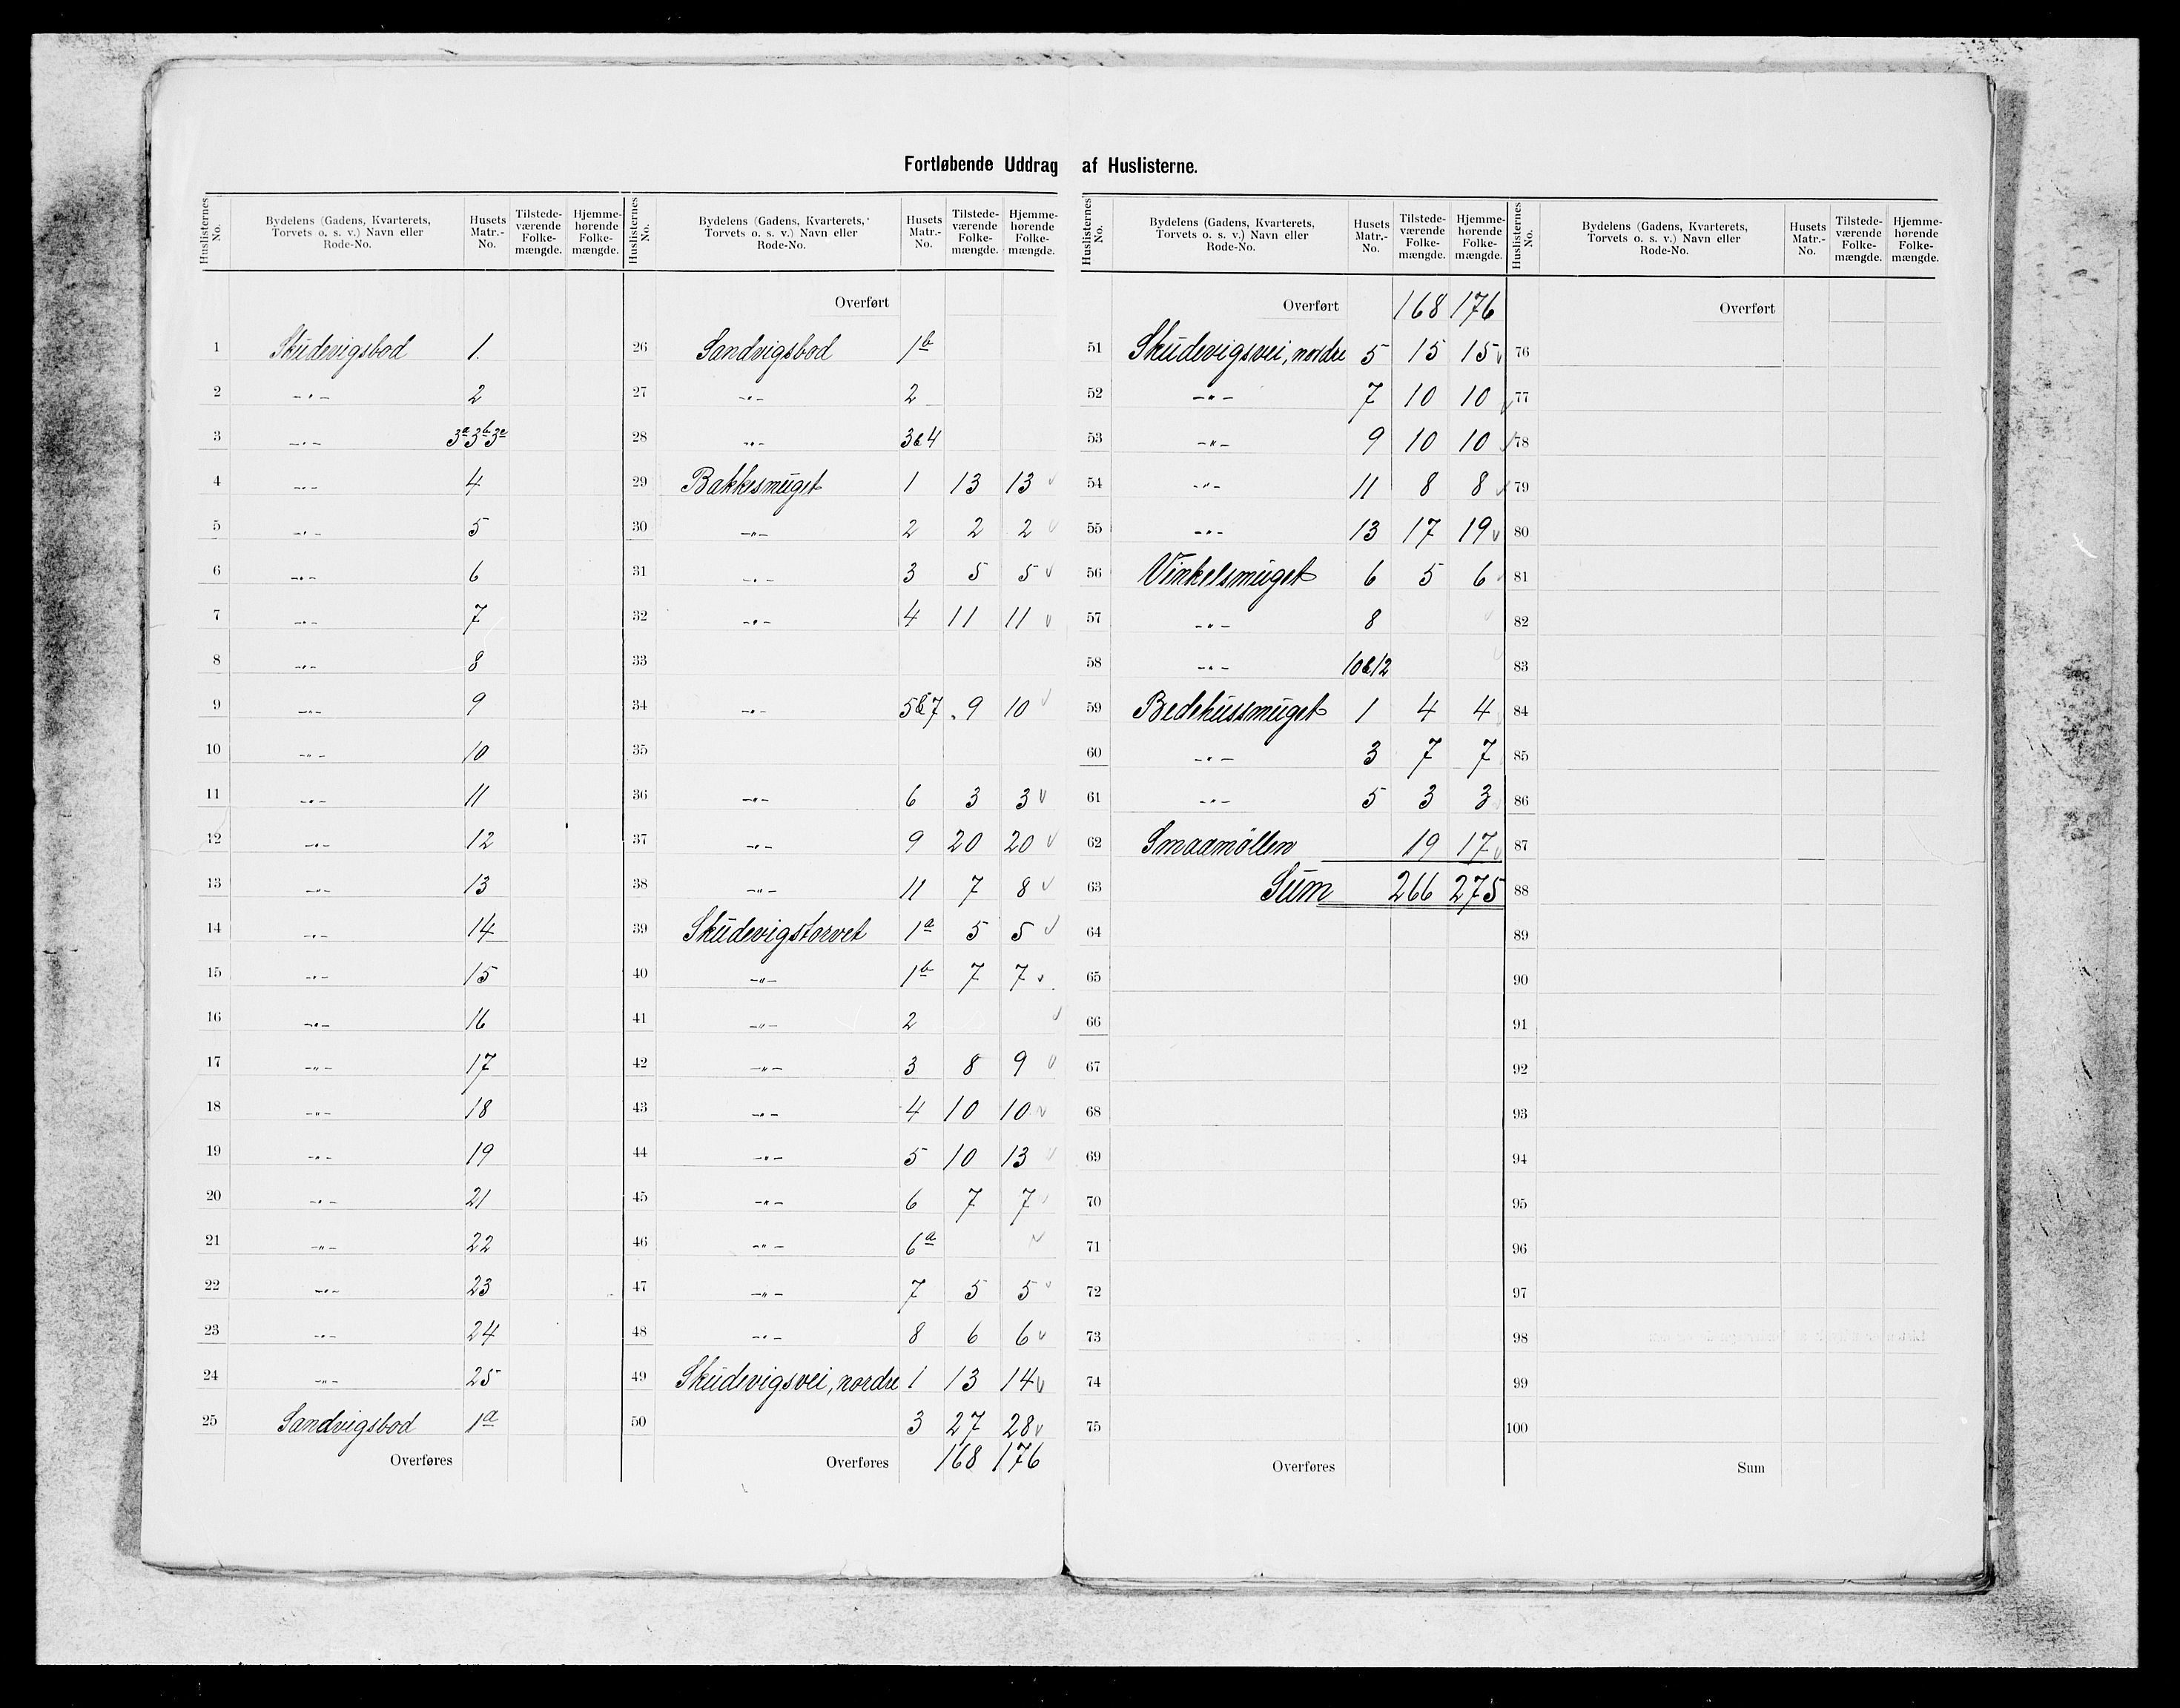 Fortløbende Uddrag af Huslisterne.
Huslisternes No. Bydelens (Gadens, Kvarterets, Torvets o. s. v.) Navn eller Rode-No. Husets Matr.-No. Tilstedeværende Folkemængde. Hjemmehørende Folkemængde.
1 Skudevigsbod 1.
2 -"- 2
3 -"- 3a 3b 3c
4 -"- 4
5 -"- 5
6 -"- 6
7 -"- 7
8 -"- 8
9 -"- 9
10 -"- 10
11 -"- 11
12 -"- 12
13 -"- 13
14 -"- 14
15 -"- 15
16 -"- 16
17 -"- 17
18 -"- 18
19 -"- 19
20 -"- 21
21 -"- 22
22 -"- 23
23 -"- 24
24 -"- 25
25 Sandvigsbod 1a
Overføres
Huslisternes No. Bydelens (Gadens, Kvarterets, Torvets o. s. v.) Navn eller Rode-No. Husets Matr.-No. Tilstedeværende Folkemængde. Hjemmehørende Folkemængde.
Overført
26 Sandvigsbod 1b
27 -"- 2
28 -"- 3&4
29 Bakkesmuget 1 13 13 v
30 -"- 2 2 2 v
31 -"- 3 5 5 v
32 -"- 4 11 11 v
33
34 -"- 5&7 9 10 v
35
36 -"- 6 3 3 v
37 -"- 9 20 20 v
38 -"- 11 7 8 v
39 Skudevigstorvet 1a 5 5 v
40 -"- 1b 7 7 v
41 -"- 2 v
42 -"- 3 8 9 v
43 -"- 4 10 10 v
44 -"- 5 10 13 v
45 -"- 6 7 7 v
46 -"- 6a v
47 -"- 7 5 5 v
48 -"- 8 6 6 v
49 Skudevigsvei, nordre 1 13 14 v
50 3 27 28 v
Overføres 168 176
Huslisternes No. Bydelens (Gadens, Kvarterets, Torvets o. s. v.) Navn eller Rode-No. Husets Matr.-No. Tilstedeværende Folkemængde. Hjemmehørende Folkemængde.
Overført 168 176
51 Skudevigsvei, nordre 5 15 15 v
52 -"- 7 10 10 v
53 -"- 9 10 10 v
54 -"- 11 8 8 v
55 -"- 13 17 19 v
56 Vinkelsmuget 6 5 6 v
57 -"- 8 v
58 -"- 10&12 v
59 Bedehussmuget 1 4 4
60 -"- 3 7 7
61 -"- 5 3 3
62 Smaamøllen 19 17 v
63 Sum 266 275
64
65
66
67
68
69
70
71
72
73
74
75
Overføres
Huslisternes No. Bydelens (Gadens, Kvarterets, Torvets o. s. v.) Navn eller Rode-No. Husets Matr.-No. Tilstedeværende Folkemængde. Hjemmehørende Folkemængde.
Overført
76
77
78
79
80
81
82
83
84
85
86
87
88
89
90
91
92
93
94
95
96
97
98
99
100
Sum